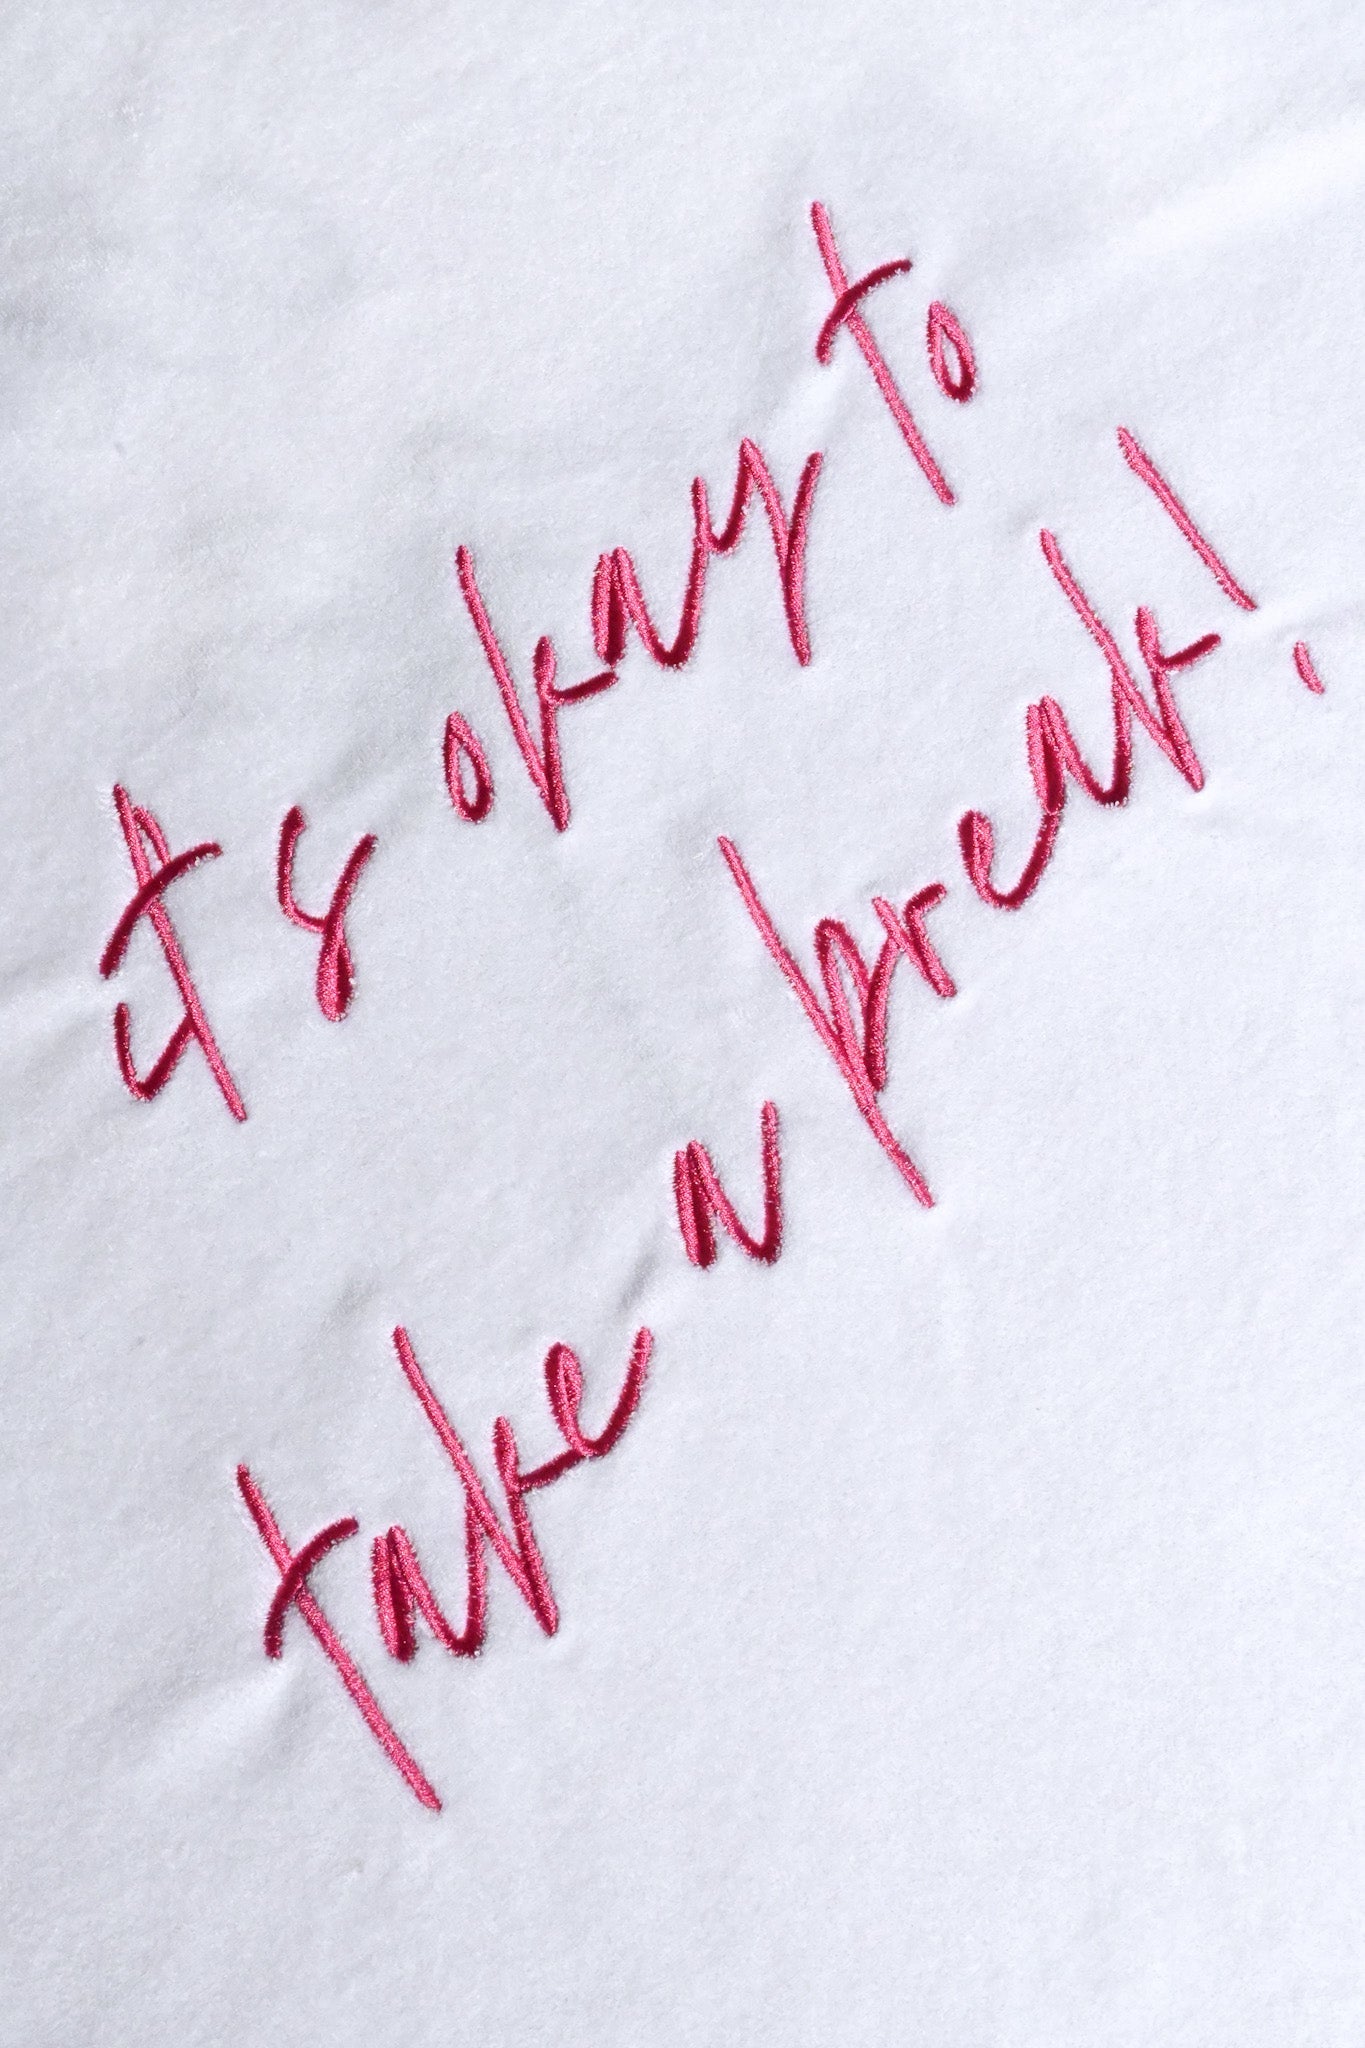 its okay to
take a break!